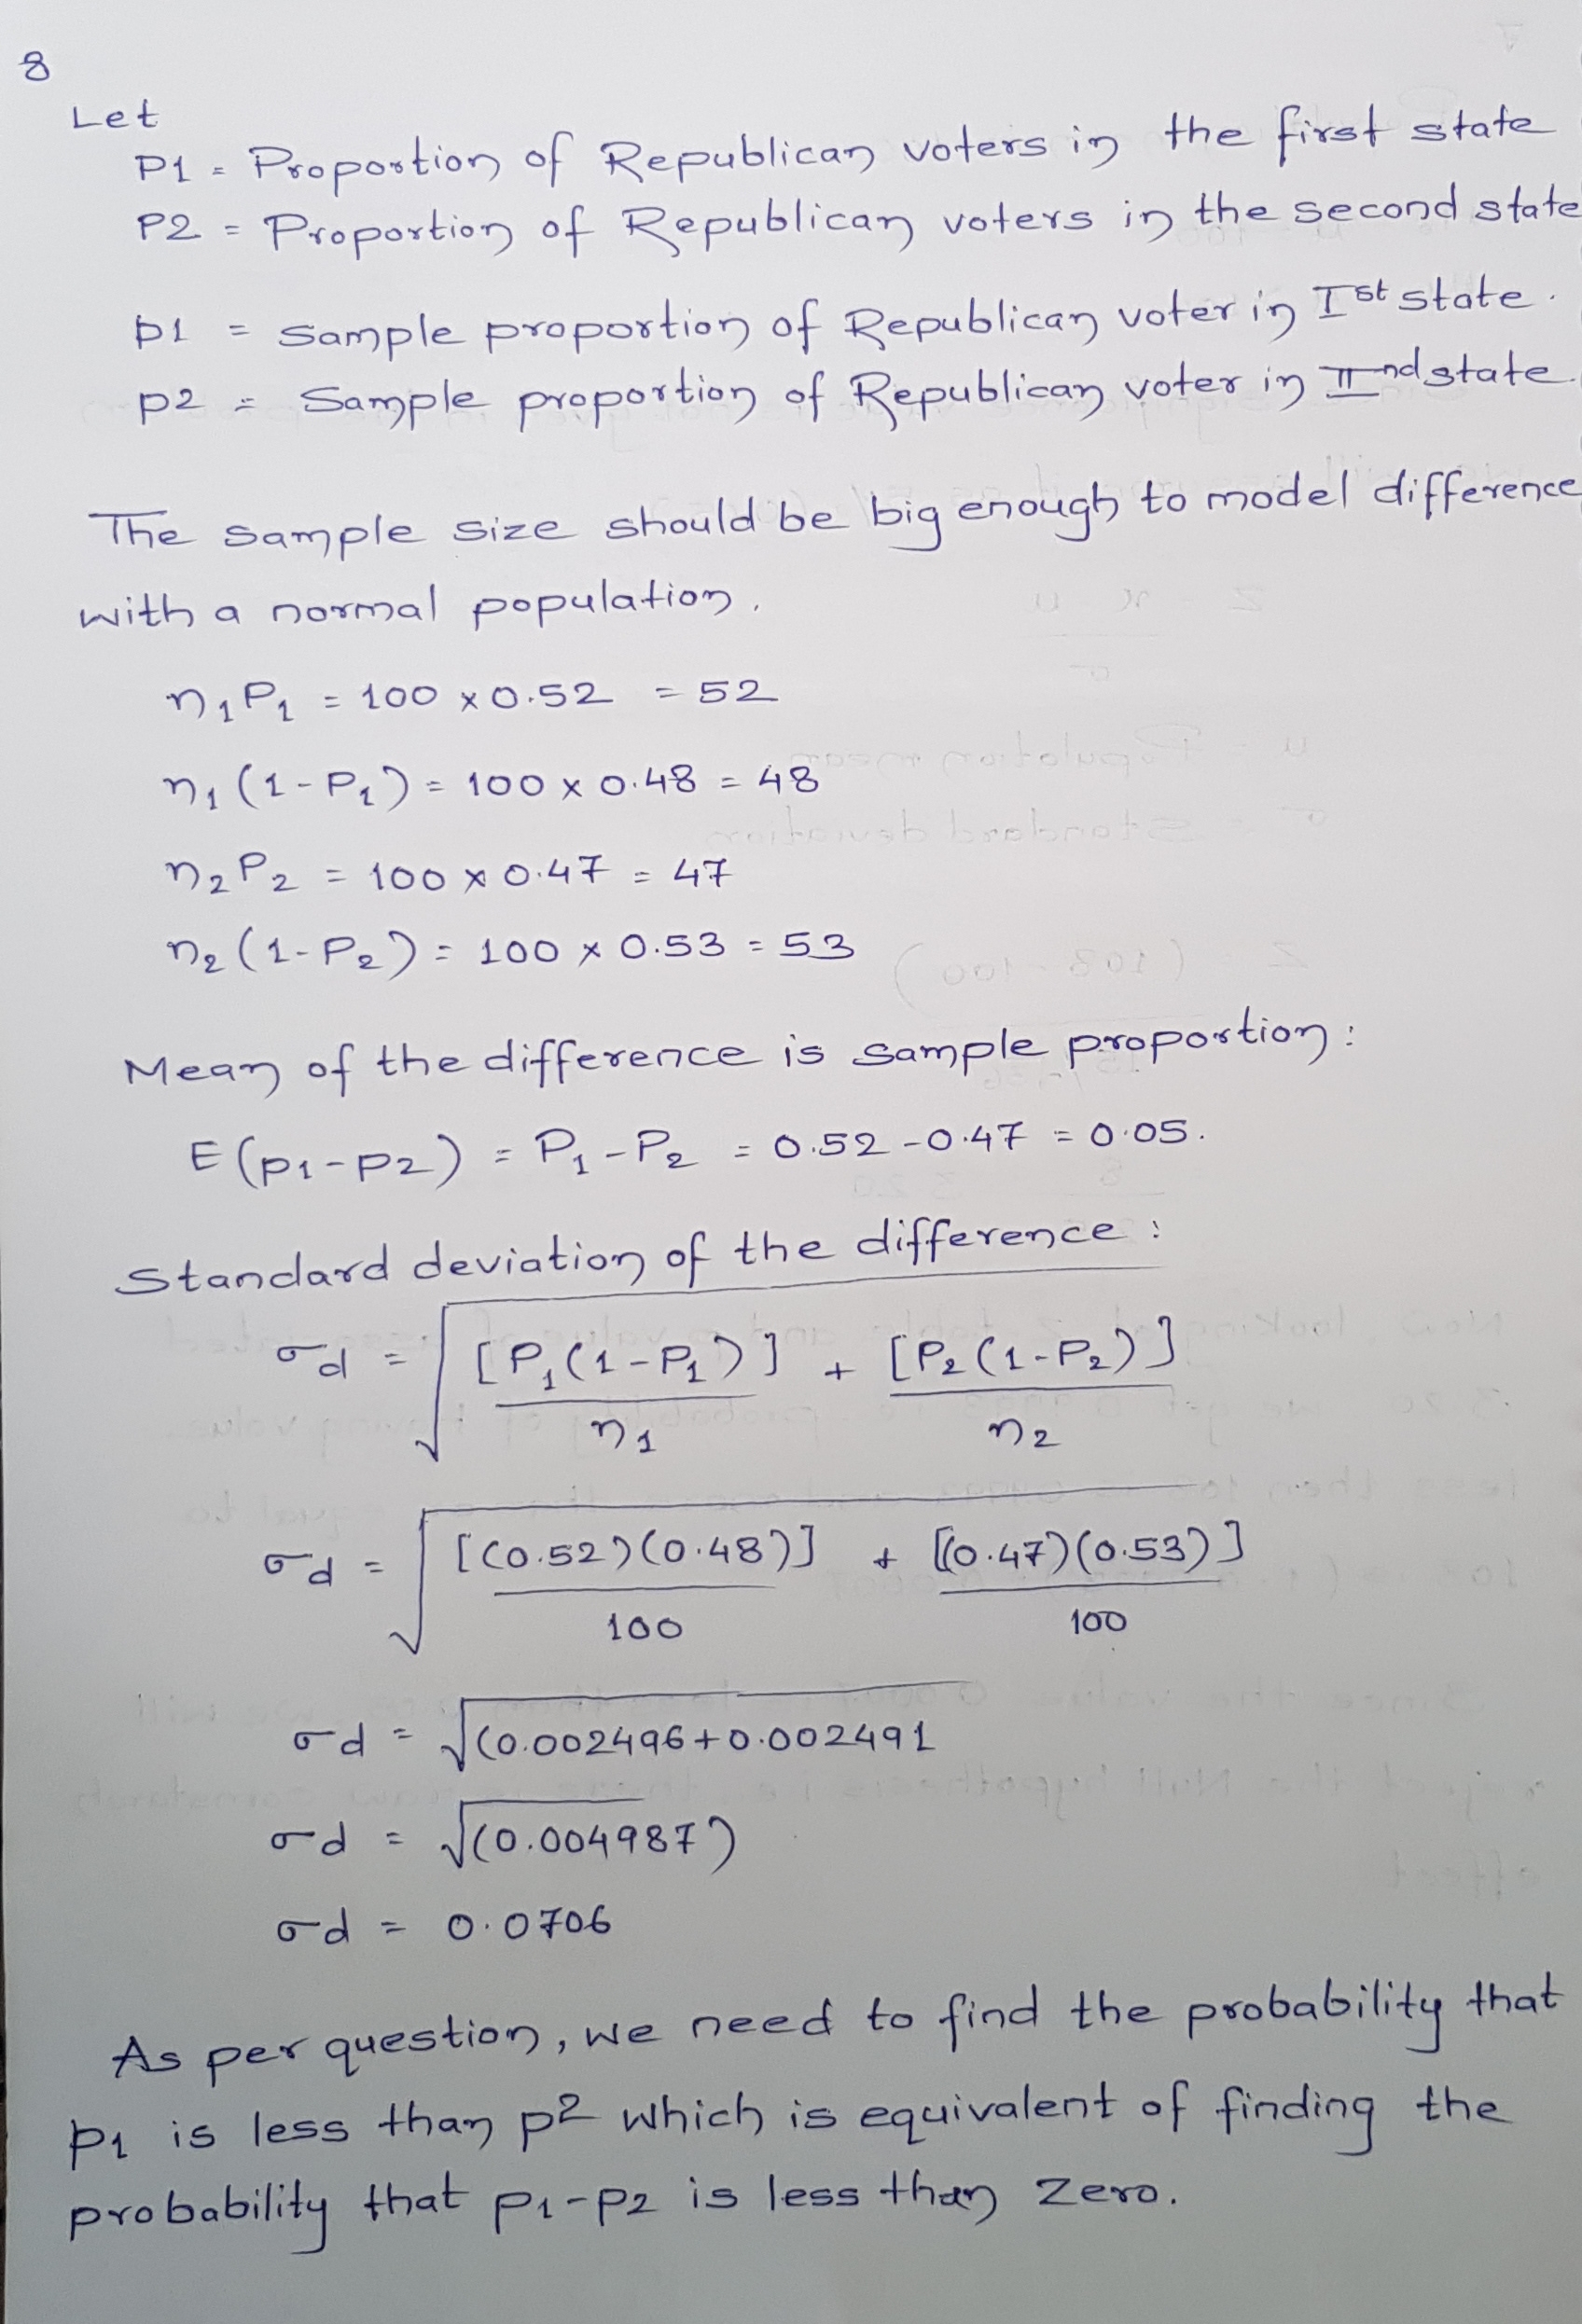 8
Let
P1 = Proportion of Republican voters in the first state
P2 = Proportion of Republican voters in the second state
p1 = sample proportion of Republican voter in Ist state.
p2 = Sample proportion of Republican voter in IInd state.
The sample size should be big enough to model difference
with a normal population.
n₁P₁ = 100 x 0.52 = 52
n₁(1-P₁) = 100 x 0.48 = 48
n₂P₂ = 100 x 0.47 = 47
n₂(1-P₂) = 100 x 0.53 = 53
Mean of the difference is sample proportion:
E(p₁-p₂) = P₁-P₂ = 0.52-0.47 = 0.05.
Standard deviation of the difference:
σd = √[P₁(1-P₁)]/n₁ + [P₂(1-P₂)]/n₂
σd = √[(0.52)(0.48)]/100 + [(0.47)(0.53)]/100
σd = √(0.002496+0.002491
σd = √(0.004987)
σd = 0.0706
As per question, we need to find the probability that
p₁ is less than p2 which is equivalent of finding the
probability that p₁-p₂ is less than zero.